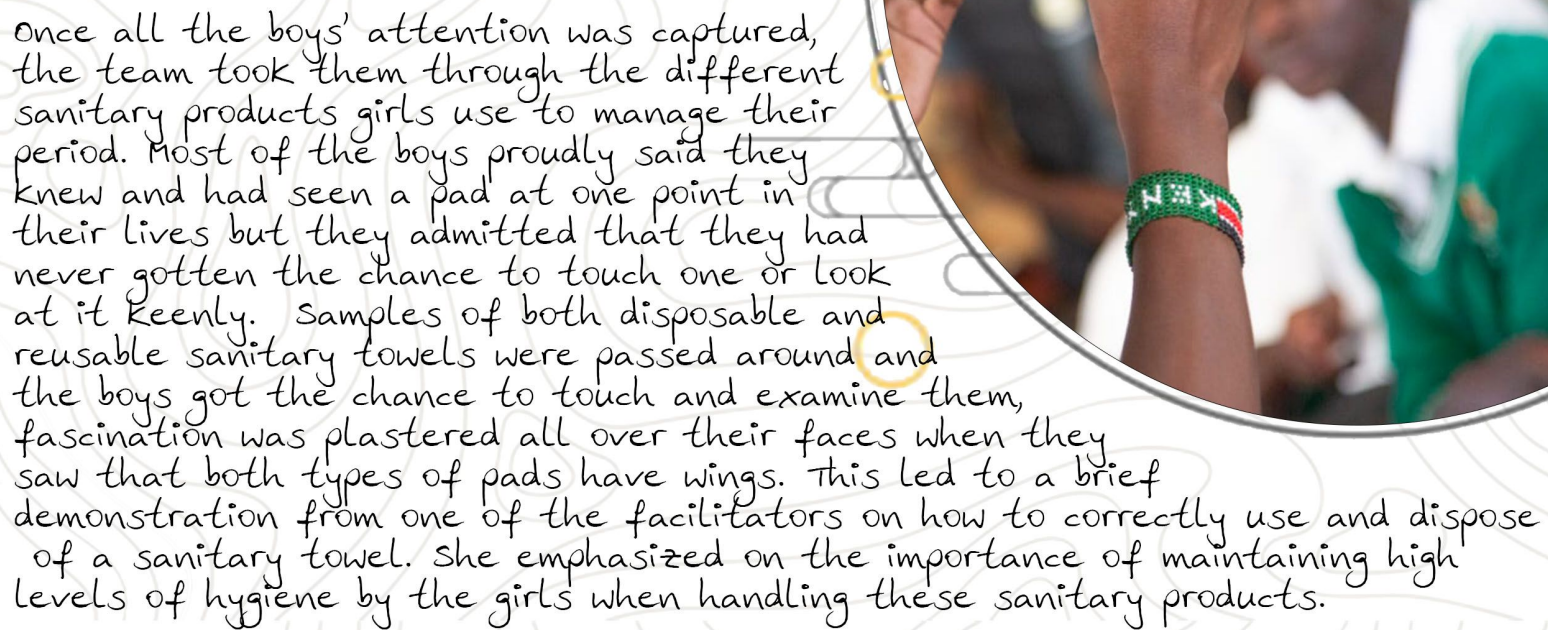 Once all the boys' attention was captured,
the team took them through the different
sanitary products girls use to manage their
period. Most of the boys proudly said they
knew and had seen a pad at one point in
their lives but they admitted that they had
never gotten the chance to touch one or look
at it keenly.  Samples of both disposable and
reusable sanitary towels were passed around and
the boys got the chance to touch and examine them,
fascination was plastered all over their faces when they
saw that both types of pads have wings. This led to a brief
demonstration from one of the facilitators on how to correctly use and dispose
of a sanitary towel. She emphasized on the importance of maintaining high
levels of hygiene by the girls when handling these sanitary products.